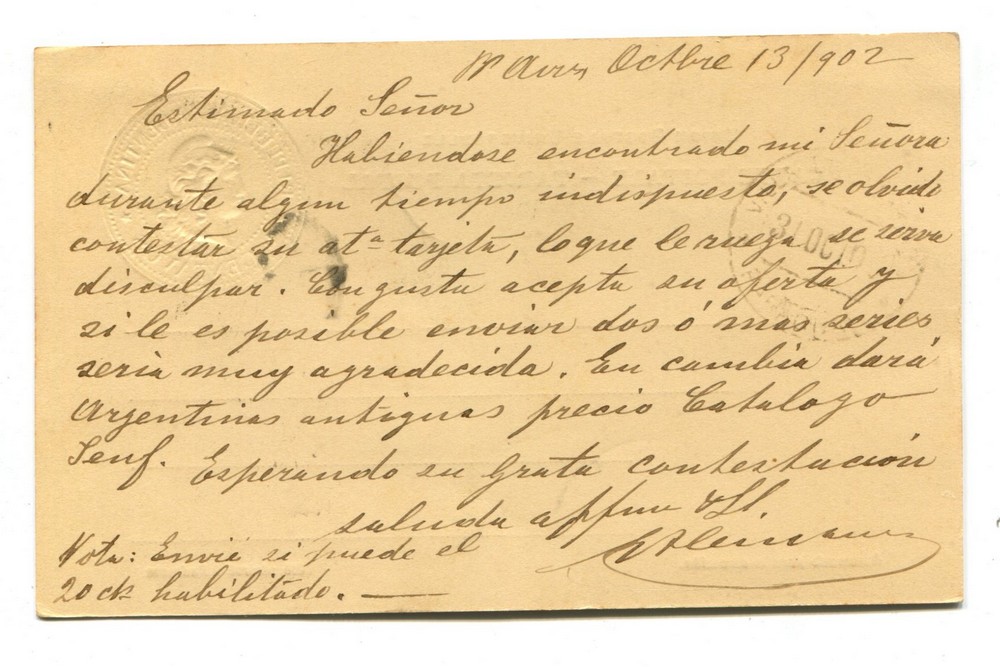 Bs Aires Octbre 13/902
Estimado Señor
Habiendose encontrado mi Señora
durante algun tiempo indispuesto, se olvido
contestar su atª tarjeta, lo que le ruega se sirva
disculpar. Con gusto acepta su oferta y
si le es posible enviar dos ó mas series
seria muy agradecida. En cambio dará
Argentinas antiguas precio Catalogo
Senf. Esperando su grata contestación
saluda
Nota: Envié si puede el
20 ck habilitado.
31 OCT 0